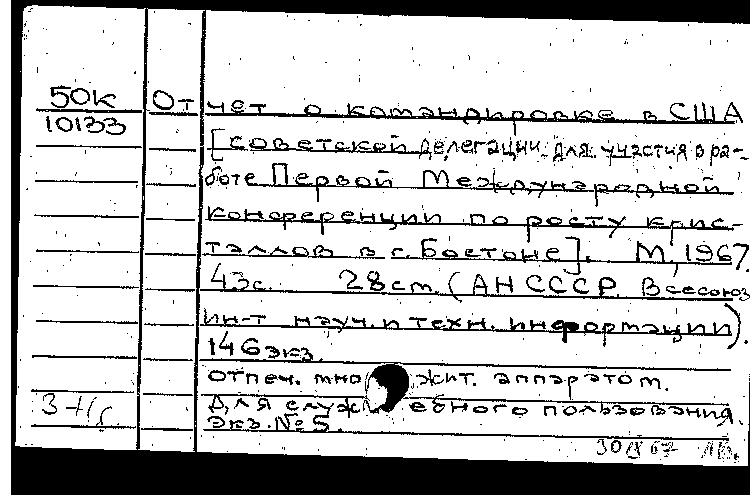 50к
10133
Отчет о командировке в США
[советской делегации для участия в ра-
боте Первой Международной
конференции по росту крис-
таллов в г. Бостоне]. М, 1967
43с. 28см. (АН СССР. Всесоюз
ин-т науч. и техн. информации).
146экз.
отпеч. множит. аппаратом.
Для служебного пользования.
Экз. № 5.